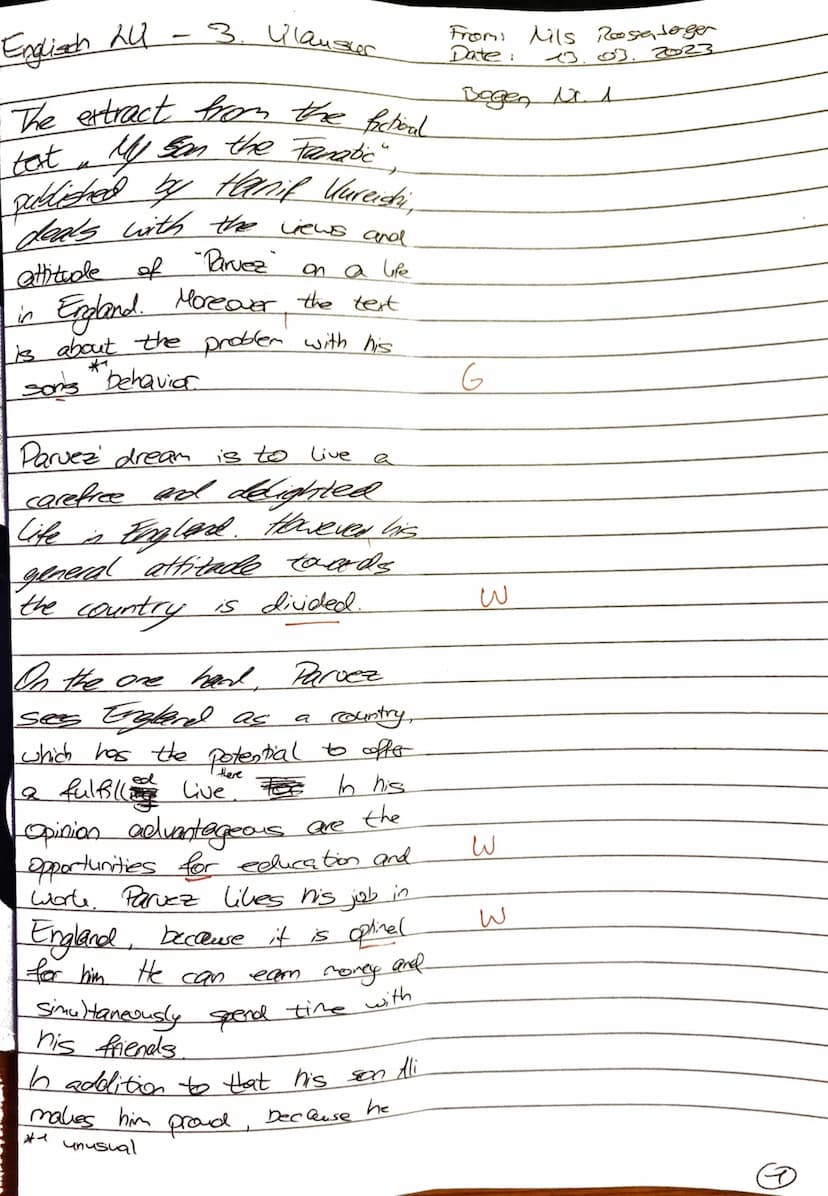 Englisch LK - 3. Klausur
From: Nils Rosenberger
Date: 13. 03. 2023
Bogen Nr. 1
The extract from the fictional
text „My Son the Fanatic“,
published by Hanif Kureishi,
deals with the views and
attitude of "Parvez" on a life
in England. Moreover the text
is about the problem with his
son's *1 behavior.
G
Parvez' dream is to live a
carefree and delighted
life in England. However, his
general attitude towards
the country is divided.
W
On the one hand, Parvez
sees England as a country,
which has the potential to offer
a fulfilled live there. In his
opinion advantageous are the
opportunities for education and
W
work. Parvez likes his job in
England, because it is optimal
W
for him. He can earn money and
simultaneously spend time with
his friends.
In addition to that his son Ali
makes him proud, because he
*1 unusual
-1-